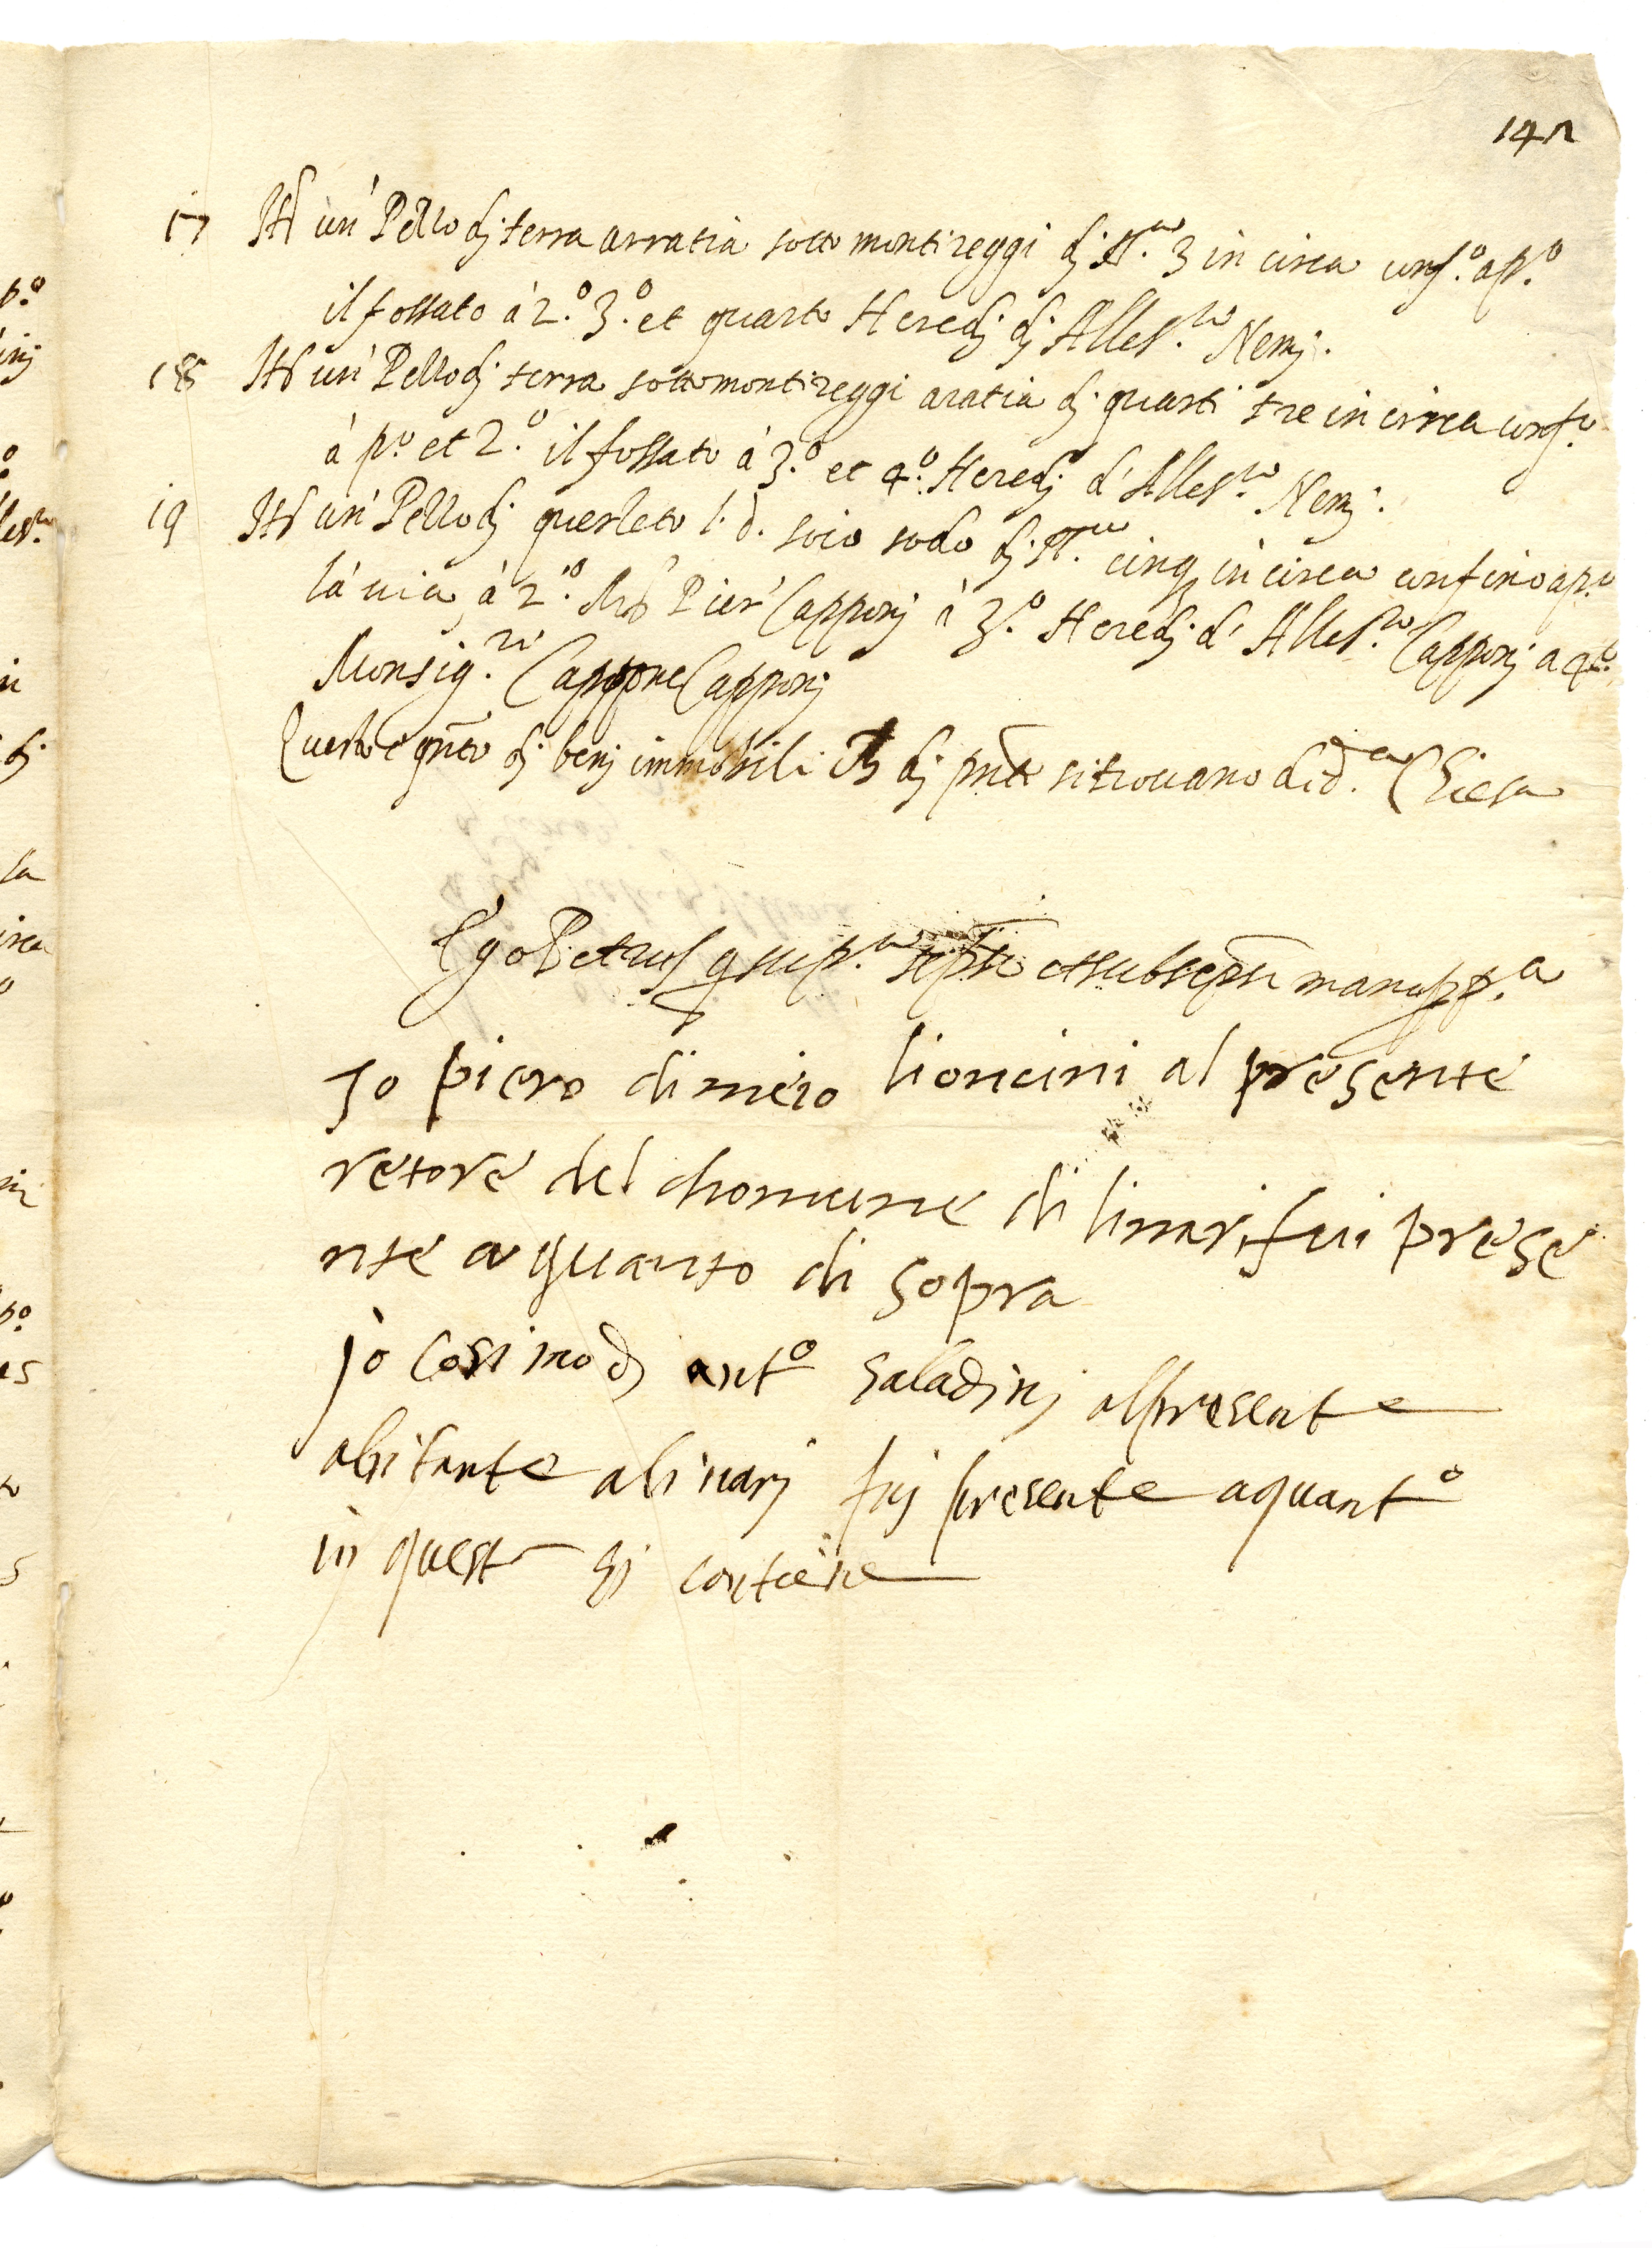 141
17 Itẽ un' Pezzo dj terra arratia sotto montireggi dj st.ᵃ 3 in circa conf.º a p.º
il fossato à 2.º 3.º et quarto Heredj dj Alless.ʳᵒ Nerj.
18 Itẽ un' Pezzo dj terra sotto montireggi aratia dj quarti tre in circa conf.º
à p.º et 2.º il fossato à 3.º et 4.º Heredj d' Aless.ʳᵒ Nerj.
19 Itẽ un' Pezzo dj querleto l. d. soio sodo dj st.ᵃ cinq in circa confino a p.º
la via à 2.º Pier' Capponj à 3.º Heredj d' Aless.ʳᵒ Capponj a 4.º
Monsig.ʳᵉ Cappone Capponj
Questo è q̃nto dj benj immobili ch dj pñte si trovano di d.ᵃ Chiesa
Ego Petrus q sup.ᵃ scpsi et subscpsi manu pp.ᵃ
Jo piero di meio lioncini al presente
retore del chomune di linari fui prese
nte a quanto di sopra
jo Cosimo dj antº saladinj alpresente
abitante alinarj fuj presente aquantº
in quest si contiene